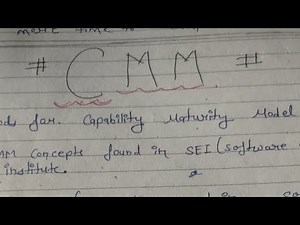 more time to
# CMM #
for. Capability Maturity Model
MM Concepts found in SEI (Software
institute.